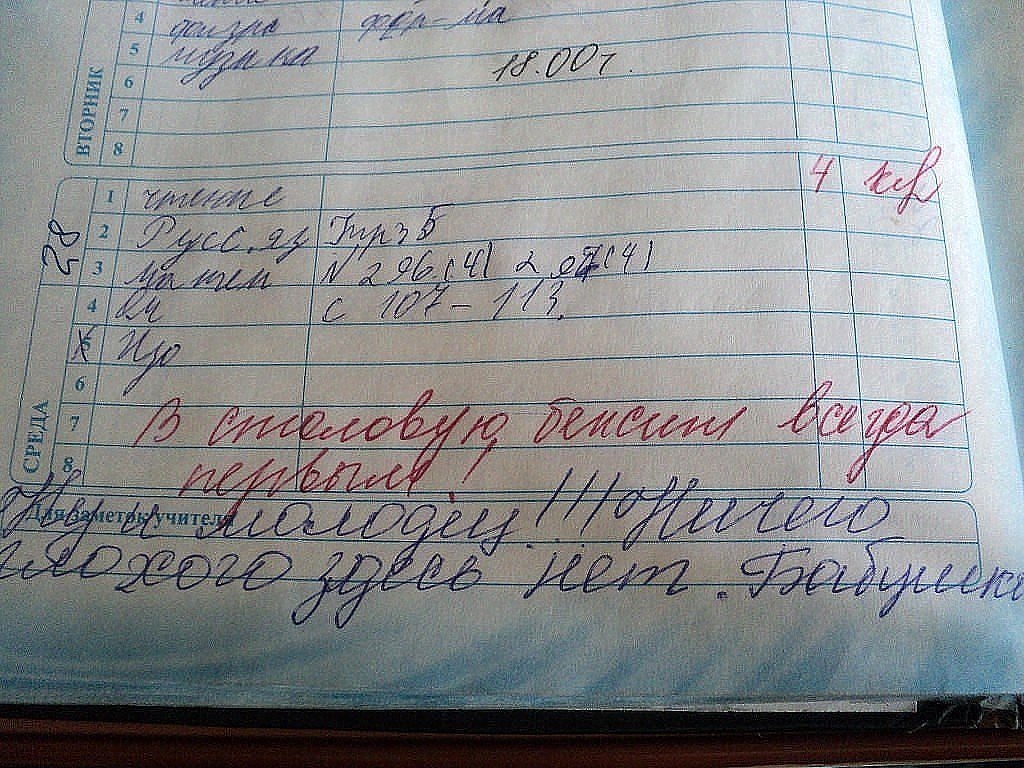 4 физра фор-ма
5 музыка
6 18.00 г.
7
8
ВТОРНИК
4 кв
1 чтение
2 Русс.яз Упр 3 Б
3 матем N 296.(4) 297(4)
4 с 107-113.
5 Изо
6
7 В столовую бежит всегда
8 первым!
28
СРЕДА
Для заметок учителя
Ну и молодец!!! Ничего
плохого здесь нет. Бабушка